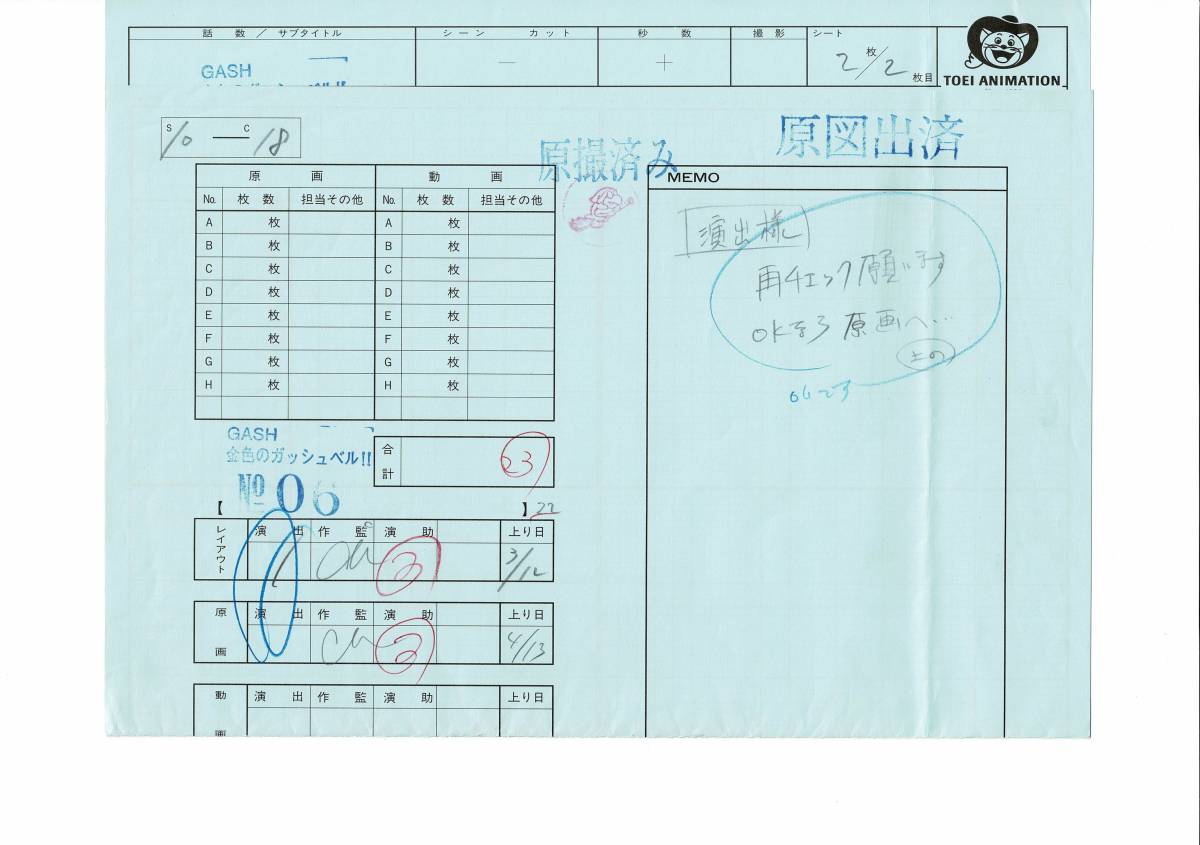 話 数 / サブタイトル シ ー ン カ ッ ト 秒 数 撮 影 シート
GASH
— + 2枚/2枚目
TOEI ANIMATION
S 10 — C 18
原撮済み 原図出済
原 画 動 画
No. 枚 数 担当その他 No. 枚 数 担当その他
A 枚 A 枚
B 枚 B 枚
C 枚 C 枚
D 枚 D 枚
E 枚 E 枚
F 枚 F 枚
G 枚 G 枚
H 枚 H 枚
合計 23
GASH
金色のガッシュベル!!
No 06
【 】22
レイアウト 演 出 作 監 演 助 上り日
3/12
原 画 演 出 作 監 演 助 上り日
4/13
動 画 演 出 作 監 演 助 上り日
MEMO
演出様
再チェック願います
OKなら原画へ…